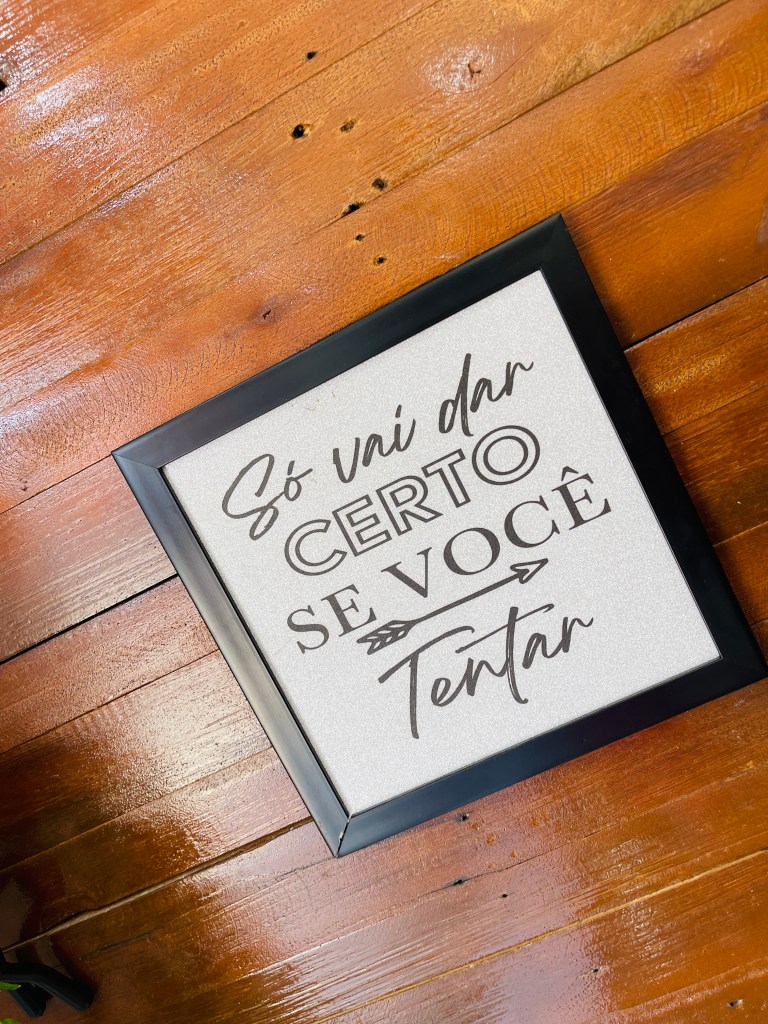 Só vai dar
CERTO
SE VOCÊ
Tentar